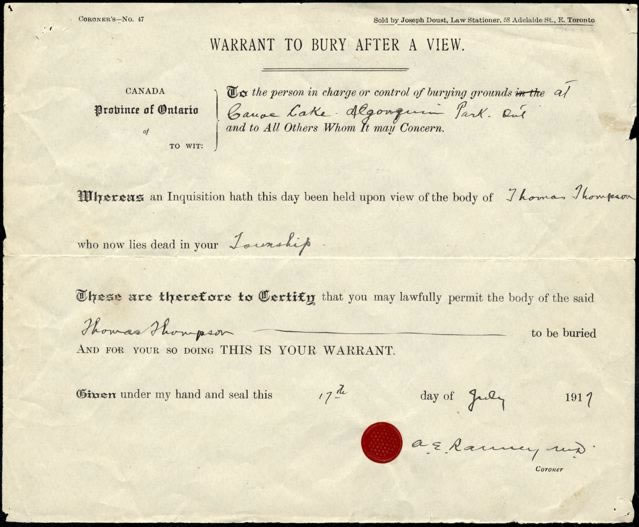 CORONER'S—No. 47
Sold by Joseph Doust, Law Stationer, 58 Adelaide St., E. Toronto
WARRANT TO BURY AFTER A VIEW.
CANADA
Province of Ontario
of
TO WIT:
To the person in charge or control of burying grounds in the at
Canoe Lake. Algonquin Park. Ont
and to All Others Whom It may Concern.
Whereas an Inquisition hath this day been held upon view of the body of Thomas Thompson
who now lies dead in your Township.
These are therefore to Certify that you may lawfully permit the body of the said
Thomas Thompson to be buried
AND FOR YOUR SO DOING THIS IS YOUR WARRANT.
Given under my hand and seal this 17th day of July 1917
A. E. Ranney M.D.
Coroner